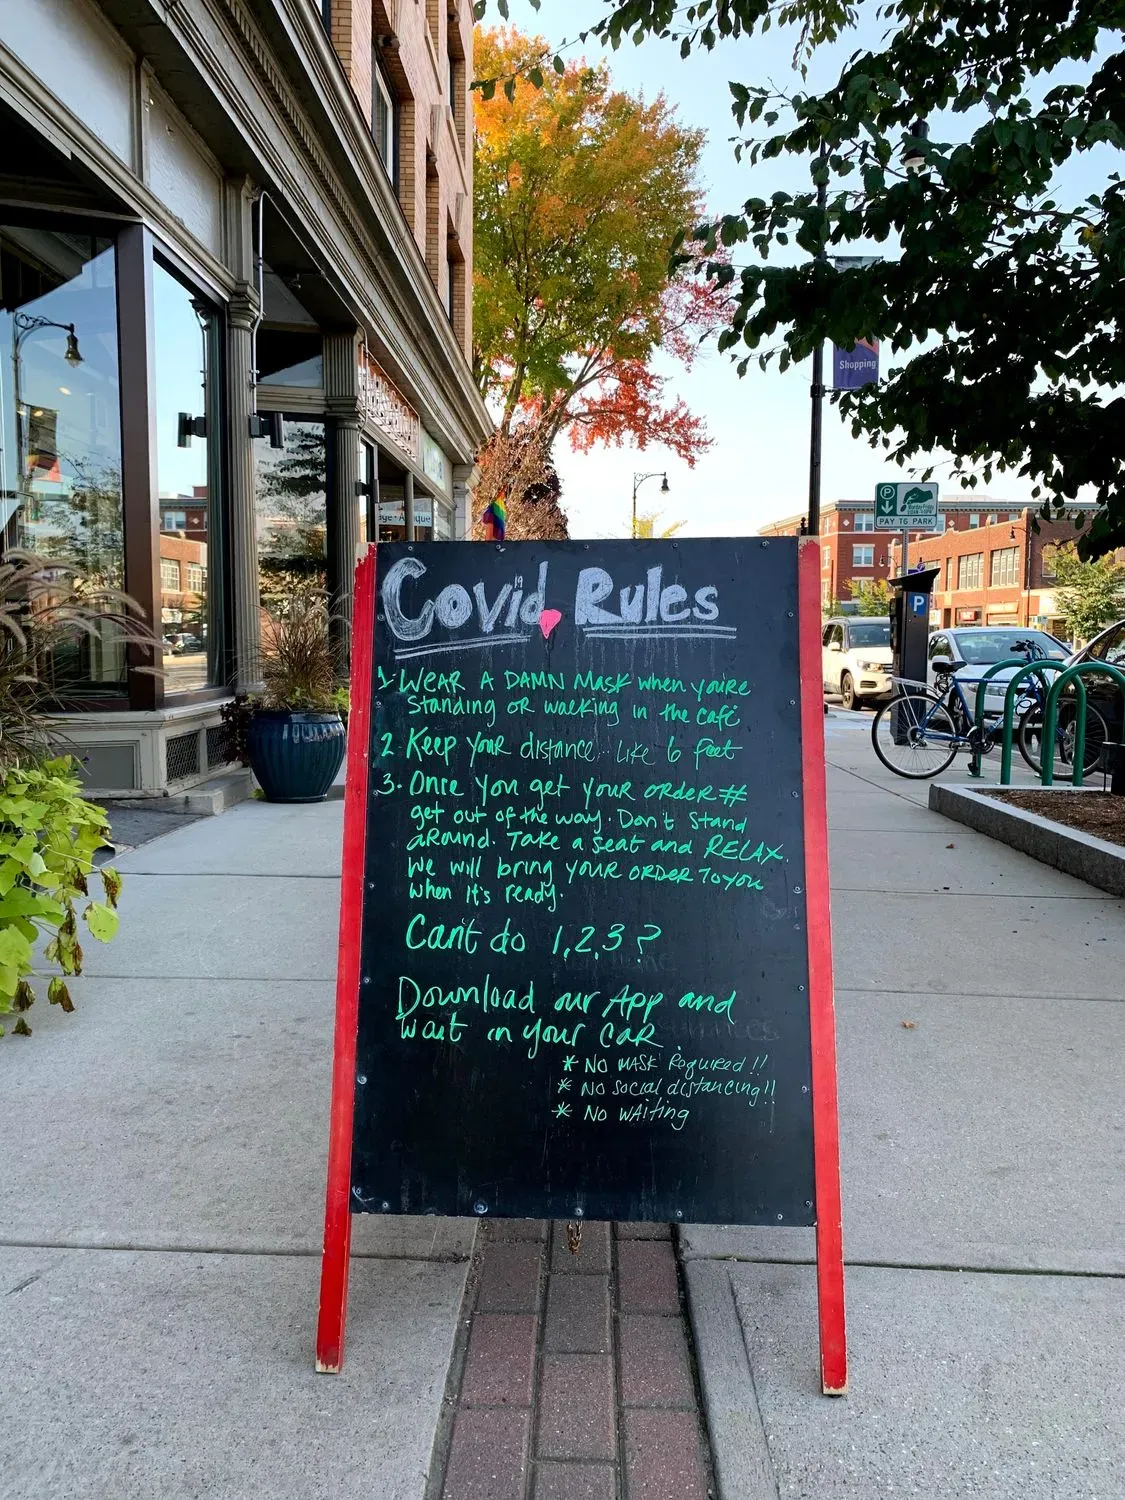 Shopping
P
PAY TO PARK
P
Covid Rules
19
1. WEAR A DAMN MASK when you're
standing or walking in the café
2. Keep your distance... like 6 feet
3. Once you get your order #
get out of the way. Don't stand
around. Take a seat and RELAX.
We will bring your order to you
when it's ready.
Can't do 1,2,3?
Download our App and
wait in your car.
* NO MASK Required!!
* NO social distancing!!
* NO WAITING